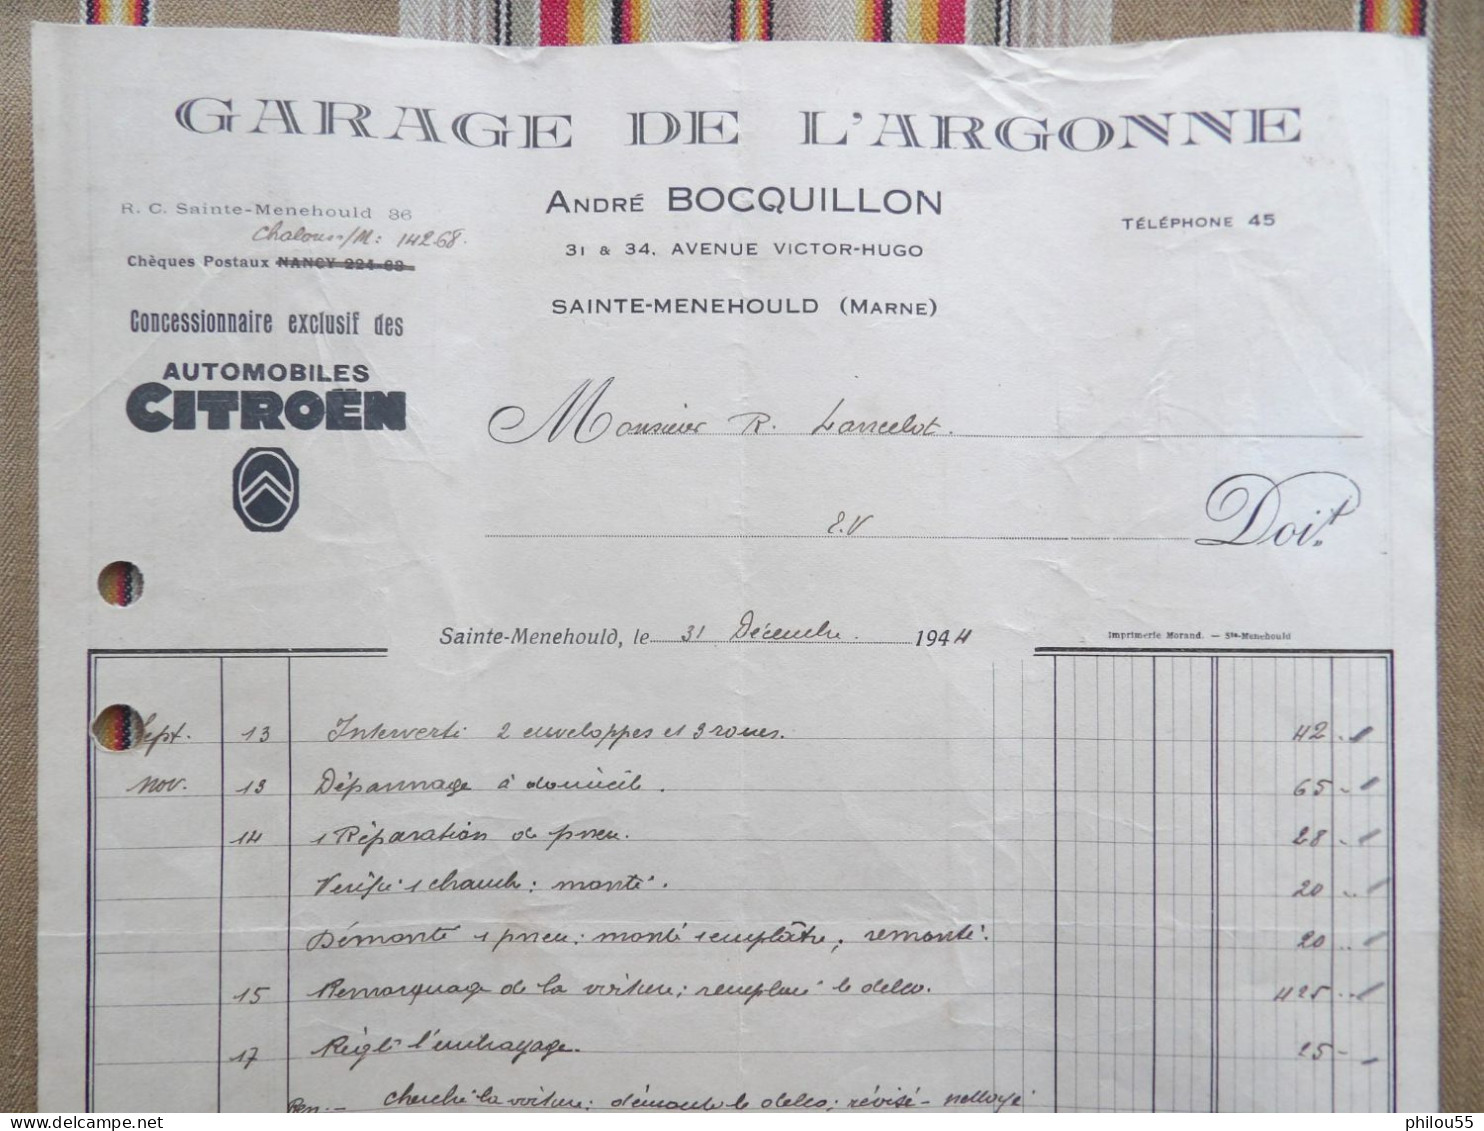 GARAGE DE L'ARGONNE
R. C. Sainte-Menehould 86
ANDRÉ BOCQUILLON
TÉLÉPHONE 45
Chalons/M: 14268.
Chèques Postaux NANCY 224-68
31 & 34, AVENUE VICTOR-HUGO
SAINTE-MENEHOULD (MARNE)
Concessionnaire exclusif des
AUTOMOBILES
CITROËN
Monsieur R. Lancelot.
E.V
Doit
Sainte-Menehould, le 31 Décembre 1944
Imprimerie Morand. — Ste-Menehould
Sept. 13 Interverti 2 enveloppes et 3 roues. 42
Nov. 13 Dépannage à domicile. 65
14 1 Réparation de pneu. 28
Vérifié 1 chamb: monté. 20
Démonté 1 pneu; monté 1 emplâtre; remonté. 20
15 Remorquage de la voiture; remplacé le delco. 425
17 Réglé l'embrayage. 25
Rem.- cherché la voiture; démonté le delco; révisé - nettoyé
Delcampe.net
philou55